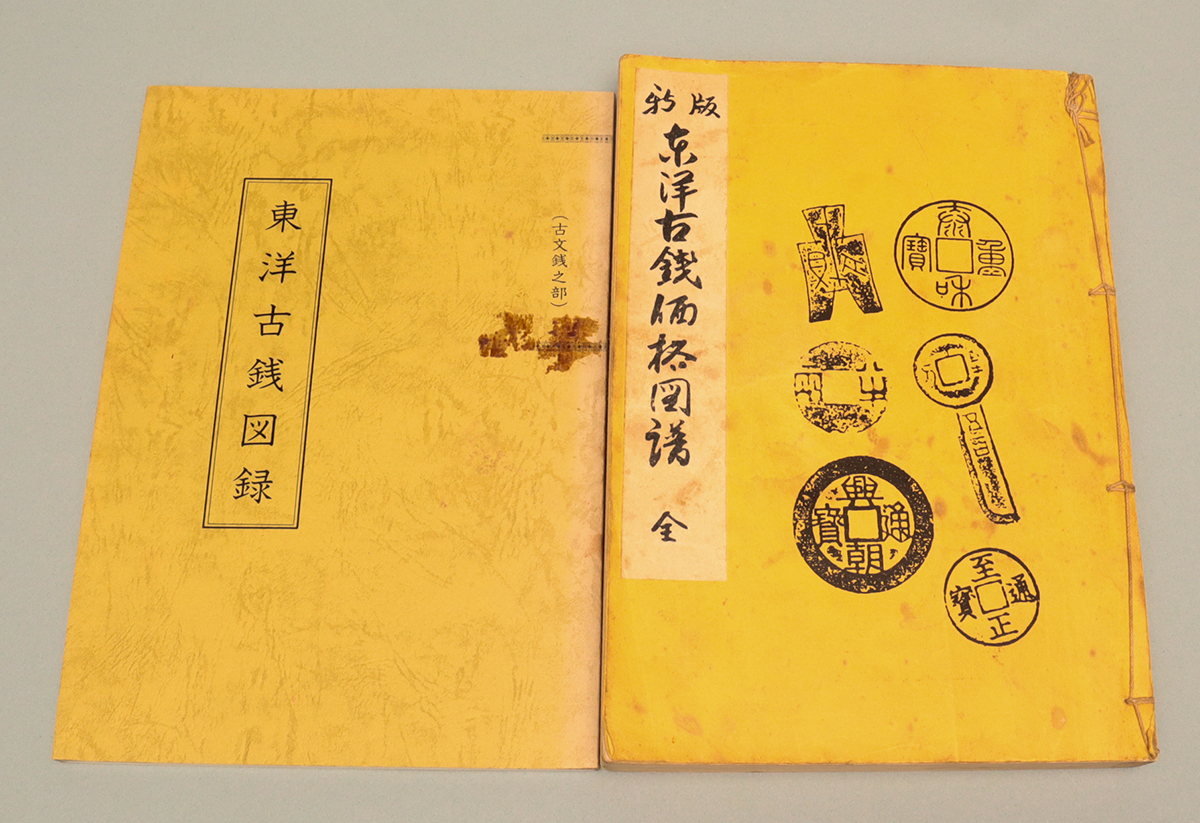 東洋古銭図録
（古文銭之部）
新版
東洋古銭価格図譜
全
泰和重寶
半兩
興朝通寶
至正通寶